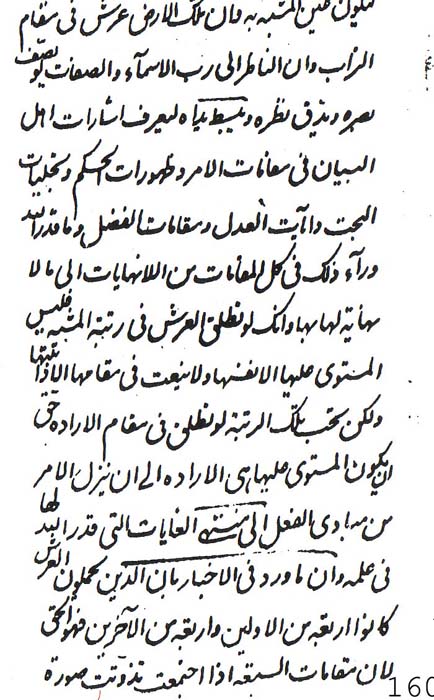 فيكون عين المشية به وان تلك الارض عرش فى مقام
التراب وان الناظر الى رب الاسمآء والصفات لو يصف
بصره ويدق نظره ويبسط يداه ليعرف اشارات اهل
البيان فى مقامات الامر وظهورات الحكم وتجليات
البحت وآيات العدل ومقامات الفضل وما قدر الله
ورآء ذلك فى كل المقامات من اللانهايات الى ما لا
نهاية لها بها وانك لو تطلق العرش فى رتبة المشية فليس
المستوى عليها الا نفسها ولا ينعت فى مقامها الا ذاتيتها
ولكن تحت تلك الرتبة لو تطلق فى مقام الاراده حق
ان يكون المستوى عليها هى الاراده الى ان ينزل الامر
من مبادى الفعل الى منتهى الغايات التى قدر الله لها
فى علمه وان ما ورد فى الاخبار بان الذين يحملون العرش
كانوا اربعة من الاولين واربعة من الآخرين فهو الحق
لان مقامات السبعة اذا اجتمعت تذوتت صورة
160